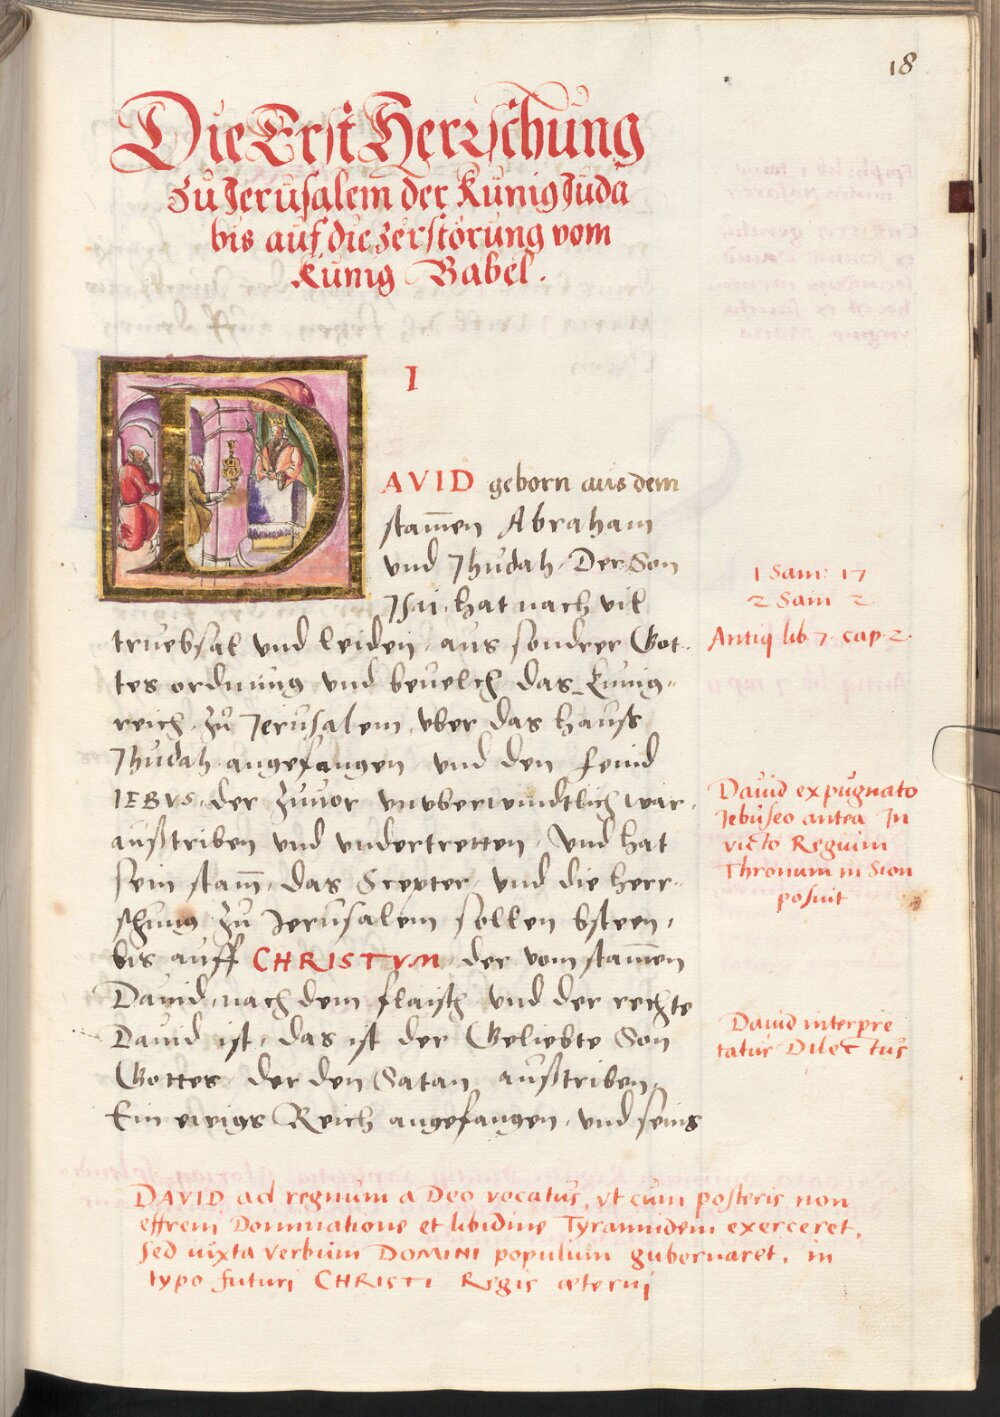 18
Die Erst Herrschung
zu Jerusalem der Künig Juda
bis auf die zerstörung vom
Künig Babel.
I
DAVID geborn aus dem
stam̄en Abraham
vnd Jhudah. Der Son
Jsai, hat nach vil
truebsal vnd leiden, aus sondrer Got-
tes ordnung vnd beuelch das Künig-
reich zů Jerusalem vber das hauss
Jhudah angefangen, vnd den feind
IEBVS, der zuuor vnvberwindtlich war,
außtriben vnd vndertretten, Vnd hat
sein stam̄, das Scepter, vnd die herr-
schung zů Jerusalem sollen bsteen,
bis auff CHRISTVM, der vom stam̄en
Dauid, nach dem flaisch, vnd der rechte
Dauid ist, das ist der Geliebte Son
Gottes, der den Satan außtriben,
Ein ewigs Reich angefangen, vnd seins
1 Sam: 17
2 Sam 2
Antiq lib 7 cap 2.
Dauid expugnato
Jebuseo antea In
victo Regium
Thronum in Sion
posuit
Dauid interpre
tatur Dilectus
DAVID ad regnum a Deo vocatus, vt cum posteris non
effrem Dominatione et libidine Tyrannidem exerceret,
sed iuxta verbum DOMINI populum gubernaret, in
typo futuri CHRISTI Regis æterni